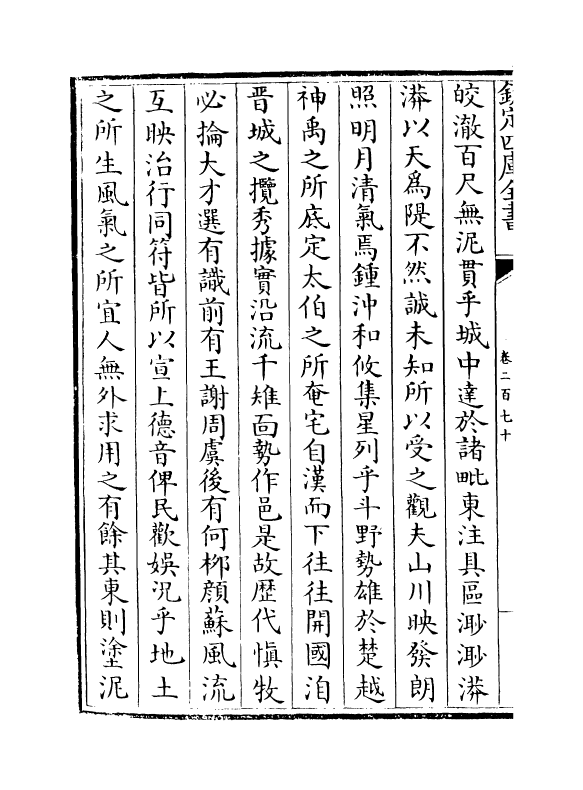 欽定四庫全書
卷二百七十
皎澈百尺無泥貫乎城中達於諸毗東注具區渺渺漭
漭以天為隄不然誠未知所以受之觀夫山川映發朗
照明月清氣焉鍾沖和攸集星列乎斗野勢雄於楚越
神禹之所底定太伯之所奄宅自漢而下往往開國洎
晉城之攬秀據實沿流千雉面勢作邑是故歴代慎牧
必掄大才選有識前有王謝周虞後有何栁顔蘇風流
互映治行同符皆所以宣上德音俾民歡娛況乎地土
之所生風氣之所宜人無外求用之有餘其東則塗泥